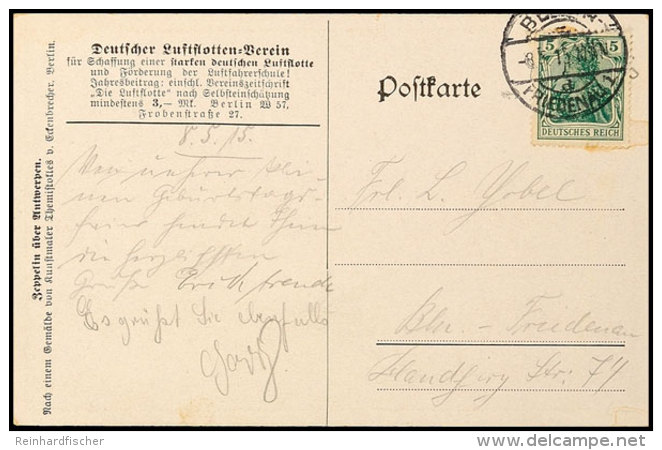 Deutscher Luftflotten-Verein
für Schaffung einer starken deutschen Luftflotte
und Förderung der Luftfahrerschule!
Jahresbeitrag: einschl. Vereinszeitschrift
"Die Luftflotte" nach Selbsteinschätzung
mindestens 3,— Mk. Berlin W 57,
Frobenstraße 27.
Zeppelin über Antwerpen.
Nach einem Gemälde von Kunstmaler Themistokles v. Eckenbrecher, Berlin.
8.5.15.
Von unserer klei-
nen Geburtstags-
feier sendet Ihnen
die herzlichsten
Grüße Erich
Es grüßt Sie ebenfalls
Postkarte
BERLIN-
FRIEDENAU 1
5 5
DEUTSCHES REICH
Frl. L. Yobel
Bln. - Friedenau
Str. 74
Reinhardfischer
delcampe.net